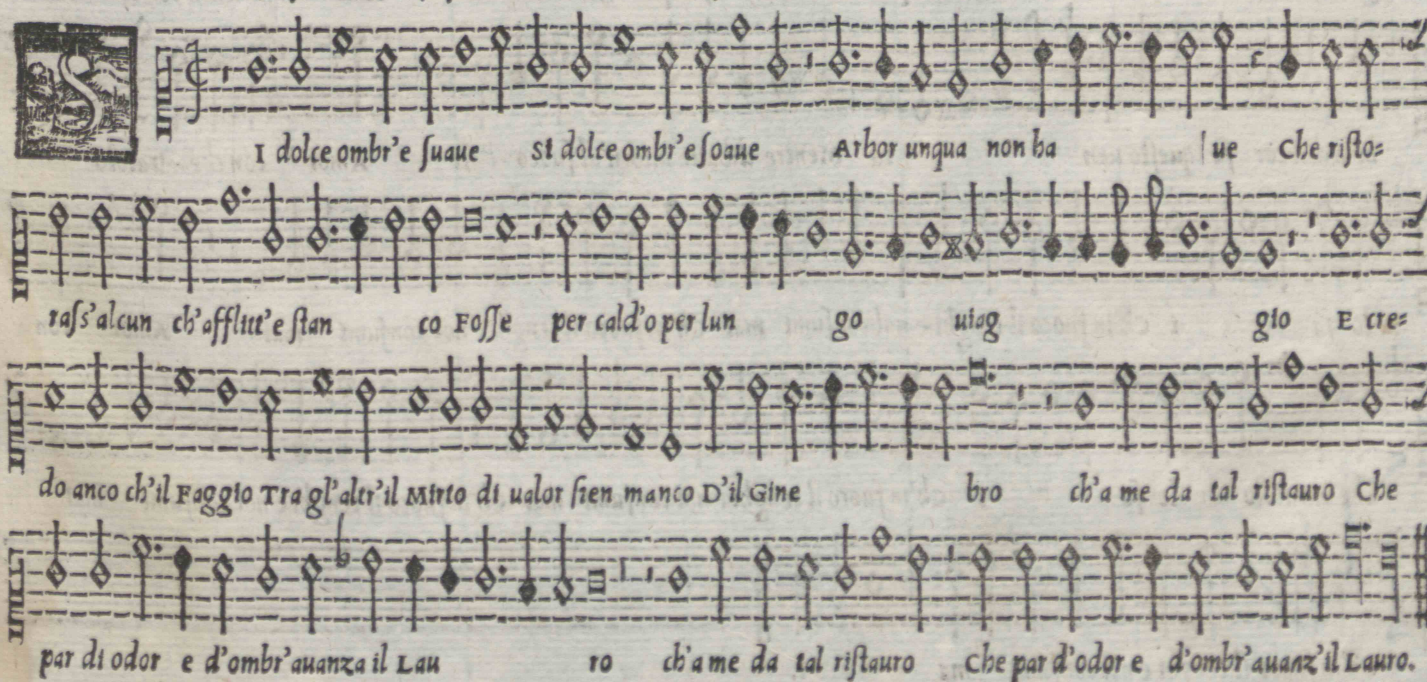 SI dolce ombr'e ſuaue Si dolce ombr'e ſoaue Arbor unqua non ha ue Che riſto=
raſs'alcun ch'afflitt'e ſtan co Foſſe per cald'o per lun go uiag gio E cre=
do anco ch'il Faggio Tra gl'altr'il Mirto di ualor ſien manco D'il Gine bro ch'a me da tal riſtauro Che
par di odor e d'ombr'auanza il Lau ro ch'a me da tal riſtauro Che par d'odor e d'ombr'auanz'il Lauro.